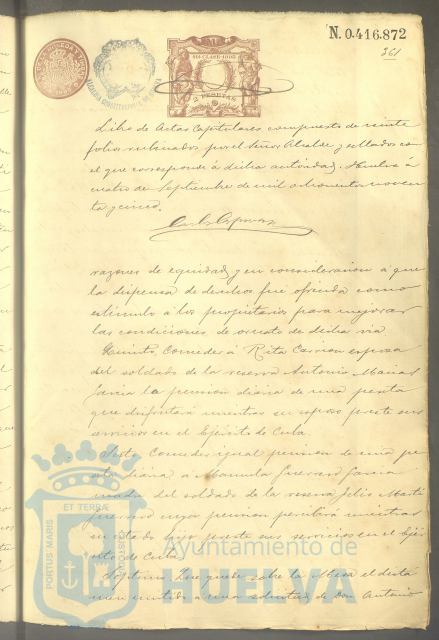 N. 0.416.872
361
11ª CLASE - 1895
2 PESETAS
Libro de Actas Capitulares compuesto de veinte
folios rubricados por el Señor Alcalde y sellados con
el que corresponde á dicha autoridad. Huelva á
cuatro de Septiembre de mil ochocientos noven
ta y cinco.
razones de equidad, y en consideracion á que
la dispensa de derechos fué ofrecida como
estímulo á los propietarios para mejorar
las condiciones de ornato de dicha via
Quinto, Conceder á Rita Carrion esposa
del soldado de la reserva Antonio Macias
Garcia la pension diaria de una peseta
que disfrutará mientras su esposo preste sus
servicios en el Ejército de Cuba.
Sesto, Conceder igual pension de una pe
seta diaria á Manuela Guerrero Garcia
madre del soldado de la reserva Felix Marti
Guerrero cuya pension percibirá mientras
su citado hijo preste sus servicios en el Ejér
cito de Cuba.
Septimo. Que quede sobre la Mesa el dictá
men emitido á una solicitud de Don Antonio
PORTUS MARIS
ET TERRÆ
CUSTODIA
Ayuntamiento de
HUELVA